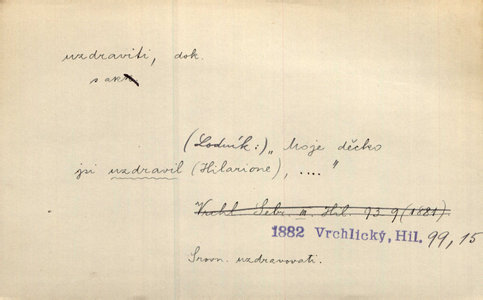 uzdraviti, dok.
s akk.
(Lodník:) „Moje děcko
jsi uzdravil (Hilarione), ....“
Vrchl. Sebr. III. Hil. 93. 9 (1881)
1882 Vrchlický, Hil. 99, 15
Srovn. uzdravovati.